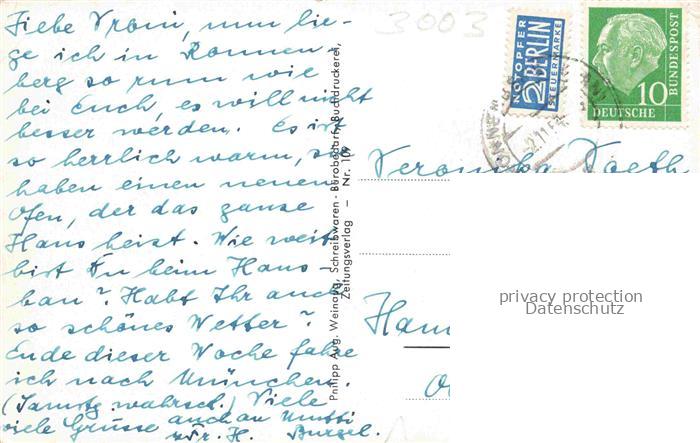 Liebe Vroni, nun lie-
ge ich in Ronnen
berg so rum wie
bei Euch, es will nicht
besser werden. Es ist
so herrlich warm, sie
haben einen neuen
Ofen, der das ganze
Haus heizt. Wie weit
bist Du beim Haus-
bau? Habt Ihr auch
so schönes Wetter?
Ende dieser Woche fahre
ich nach München.
(Samstg wahrsch.) Viele
viele Grüsse auch an Mutti
u. Fr. H. Bursel.
Philipp Aug. Weinaug, Schreibwaren - Bürobedarf, Buchdruckerei,
Zeitungsverlag — Nr. 109
3003
NOTOPFER
2 BERLIN
STEUERMARKE
DEUTSCHE BUNDESPOST
10
-2.11.5
Veronika
Hann
privacy protection
Datenschutz